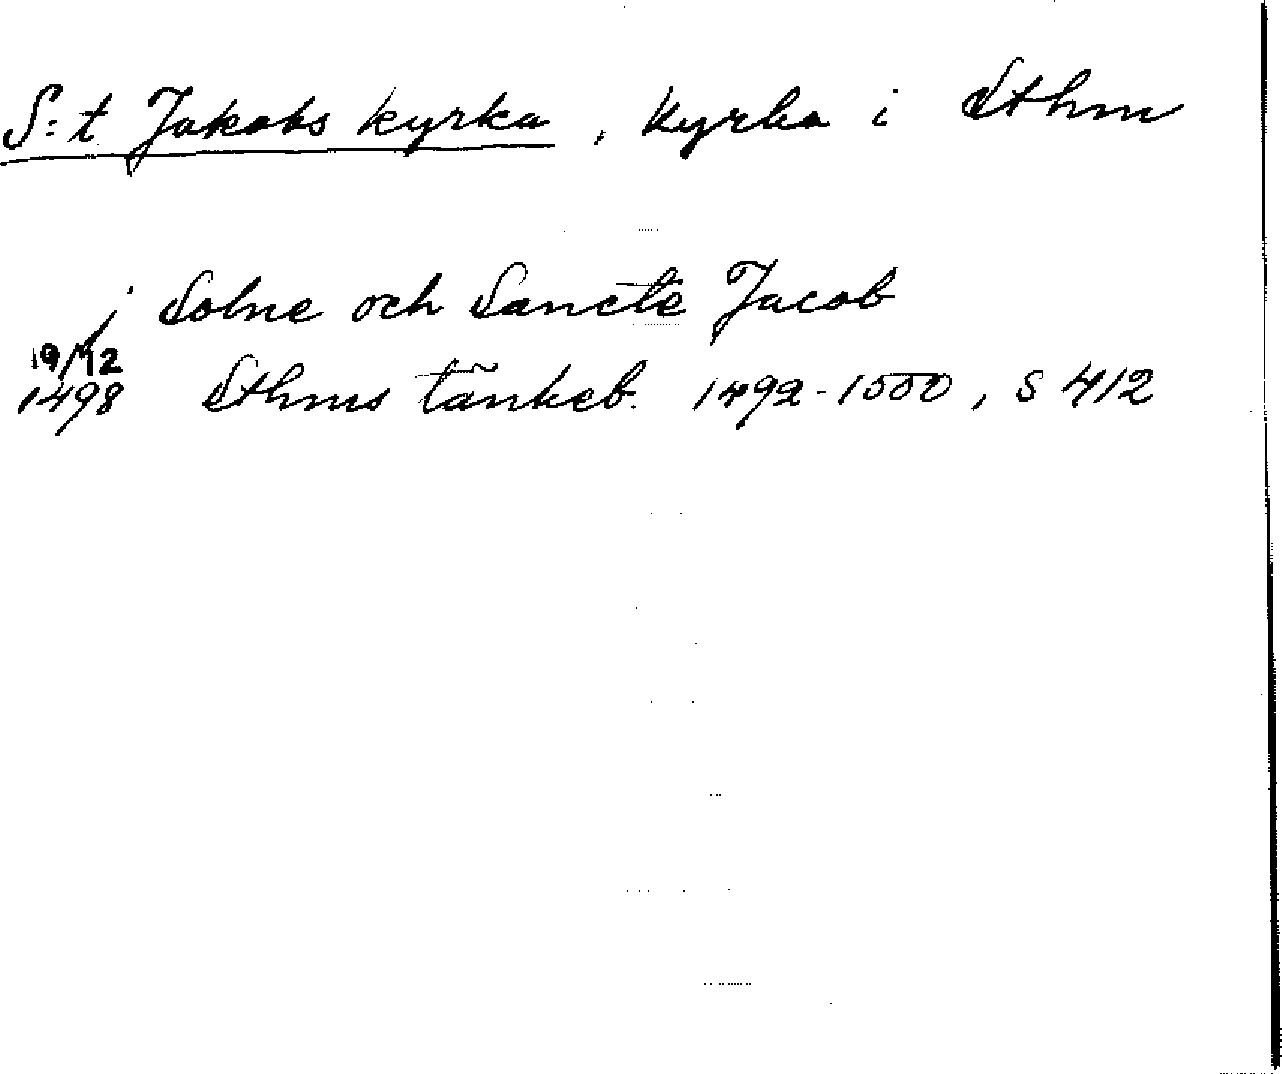 S:t Jakobs kyrka, kyrka i Sthm
j Solne och Sancte Jacob
19/12
1498 Sthms tänkeb. 1492-1500, S 412